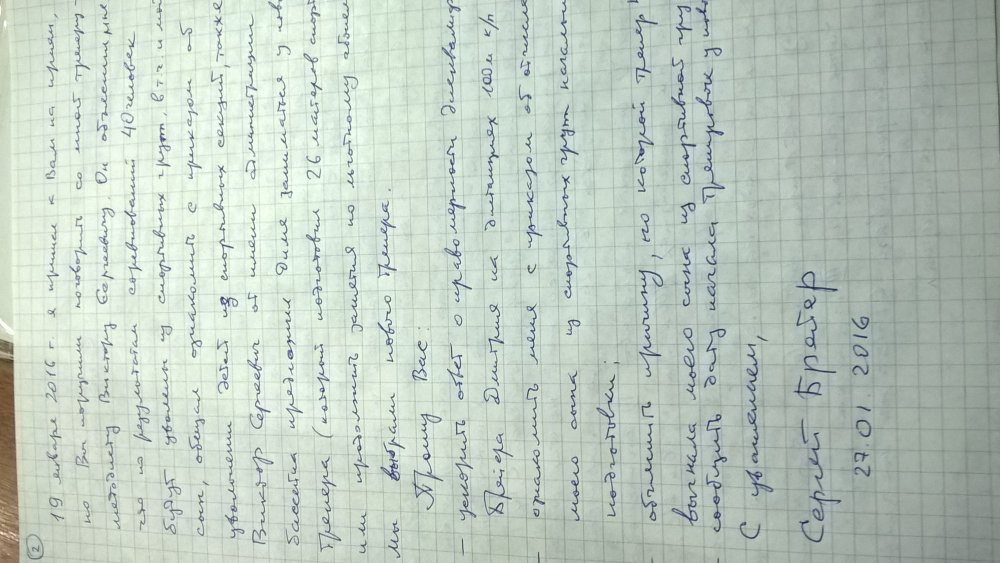 2
19 января 2016 г. я пришел к Вам на прием,
но Вы поручили поговорить со мной тренеру-
методисту Виктору Сергеевичу. Он объяснил мне
что по результатам соревнований 40 человек
будут уволены из спортивных групп, в т.ч. и мой
сын, обещал ознакомить с приказом об
увольнении детей из спортивных секций, также
Виктор Сергеевич от имени администрации
бассейна предложил Диме заниматься у
тренера (который подготовил 26 мастеров
или продолжить занятия по льготному
мы выбрали нового тренера.
Прошу Вас:
– ускорить ответ о правомерности
Брейера Дмитрия на дистанциях 100м к/п
– ознакомить меня с приказом об
моего сына из спортивных групп
подготовки;
- объяснить причину, по которой тренер
выгнала моего сына из спортивной
- сообщить дату начала тренировок у
С уважением,
Сергей Брейер
27.01.2016